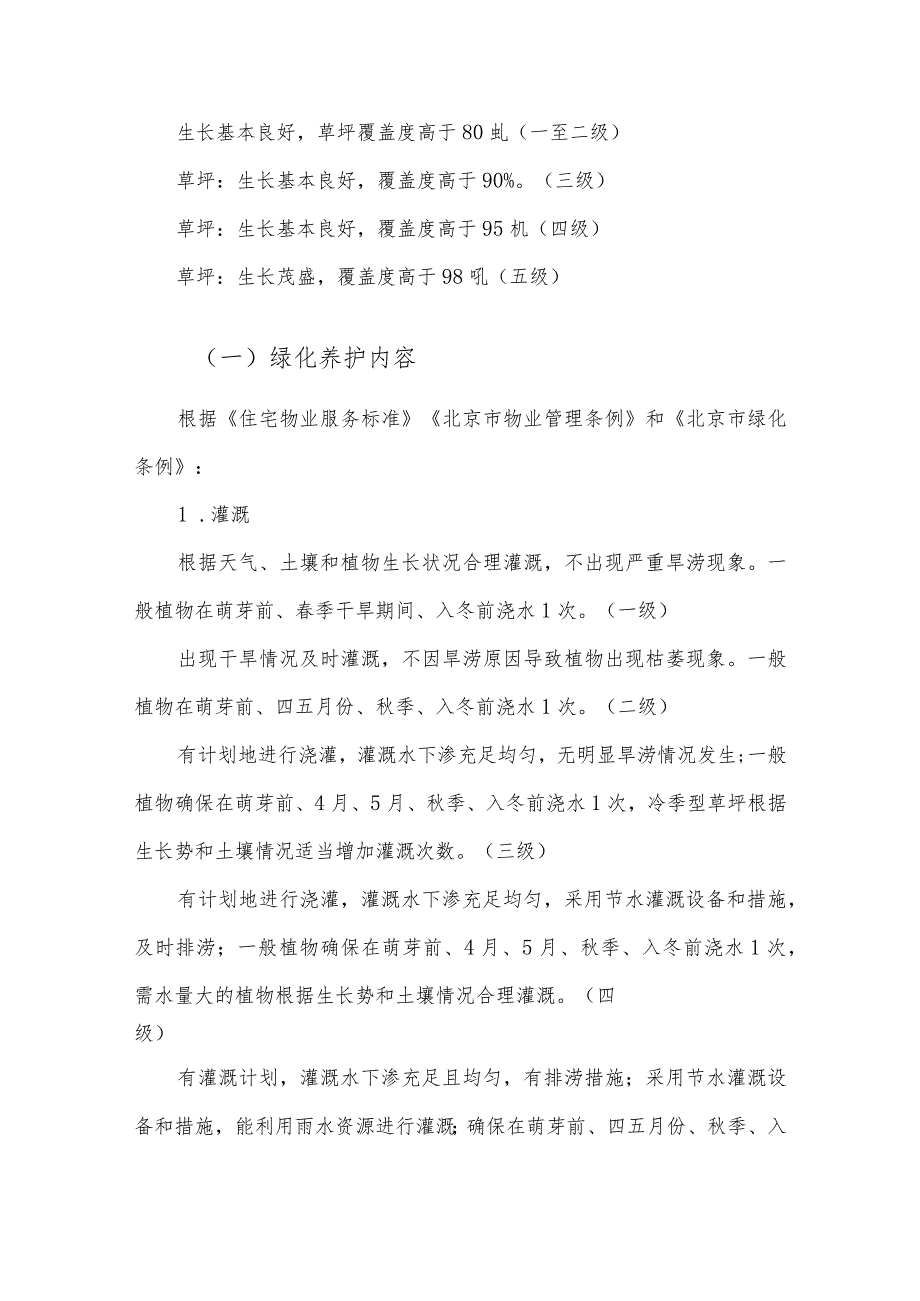 生长基本良好，草坪覆盖度高于 80 虬（一至二级）
草坪：生长基本良好，覆盖度高于 90%。（三级）
草坪：生长基本良好，覆盖度高于 95 机（四级）
草坪：生长茂盛，覆盖度高于 98 吼（五级）
（一）绿化养护内容
根据《住宅物业服务标准》《北京市物业管理条例》和《北京市绿化
条例》：
1 .灌溉
根据天气、土壤和植物生长状况合理灌溉，不出现严重旱涝现象。一
般植物在萌芽前、春季干旱期间、入冬前浇水 1 次。（一级）
出现干旱情况及时灌溉，不因旱涝原因导致植物出现枯萎现象。一般
植物在萌芽前、四五月份、秋季、入冬前浇水 1 次。（二级）
有计划地进行浇灌，灌溉水下渗充足均匀，无明显旱涝情况发生;一般
植物确保在萌芽前、4 月、5 月、秋季、入冬前浇水 1 次，冷季型草坪根据
生长势和土壤情况适当增加灌溉次数。（三级）
有计划地进行浇灌，灌溉水下渗充足均匀，采用节水灌溉设备和措施，
及时排涝；一般植物确保在萌芽前、4 月、5 月、秋季、入冬前浇水 1 次，
需水量大的植物根据生长势和土壤情况合理灌溉。（四
级）
有灌溉计划，灌溉水下渗充足且均匀，有排涝措施；采用节水灌溉设
备和措施，能利用雨水资源进行灌溉；确保在萌芽前、四五月份、秋季、入